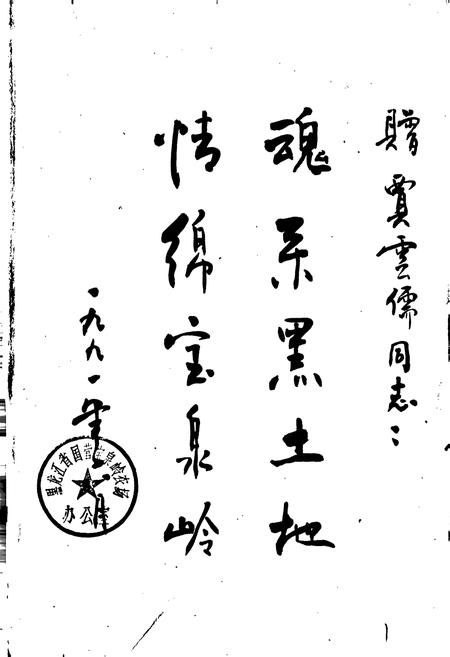 贈賈雲儒同志：
魂系黑土地
情綿宝泉岭
一九九一年七月
黑龙江省国营宝泉岭农场
办公室